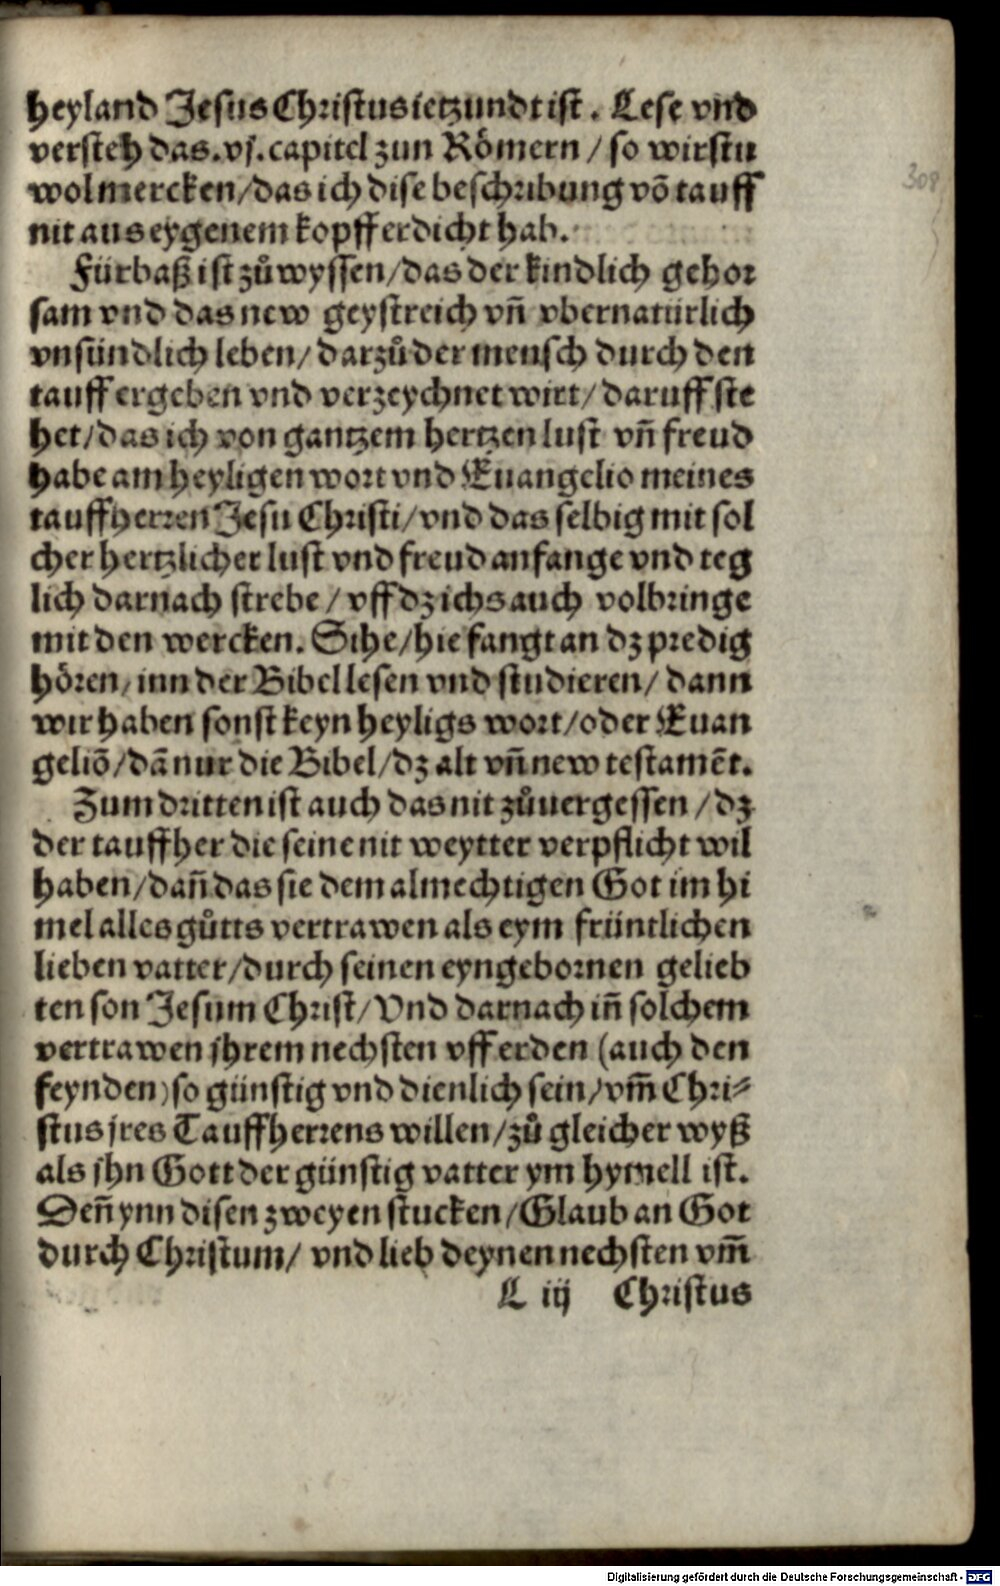 heyland Jesus Christus ietzundt ist. Lese vnd
versteh das .vj. capitel zun Römern / so wirstu
wol mercken / das ich dise beschribung võ tauff
nit aus eygenem kopff erdicht hab.
Fürbaß ist zů wyssen / das der kindlich gehor
sam vnd das new geystreich vñ vbernatürlich
vnsündlich leben / darzů der mensch durch den
tauff ergeben vnd verzeychnet wirt / daruff ste
het / das ich von gantzem hertzen lust vñ freud
habe am heyligen wort vnd Euangelio meines
tauffherren Jesu Christi / vnd das selbig mit sol
cher hertzlicher lust vnd freud anfange vnd teg
lich darnach strebe / vff dz ichs auch volbringe
mit den wercken. Sihe / hie fangt an dz predig
hören / inn der Bibel lesen vnd studieren / dann
wir haben sonst keyn heyligs wort / oder Euan
geliõ / dã nur die Bibel / dz alt vñ new testamẽt.
Zum dritten ist auch das nit zůuergessen / dz
der tauffher die seine nit weytter verpflicht wil
haben / dañ das sie dem almechtigen Got im hi
mel alles gůtts vertrawen als eym früntlichen
lieben vatter / durch seinen eyngebornen gelieb
ten son Jesum Christ / Vnd darnach iñ solchem
vertrawen jhrem nechsten vff erden (auch den
feynden) so günstig vnd dienlich sein / vm̃ Chri⸗
stus jres Tauffherrens willen / zů gleicher wyß
als jhn Gott der günstig vatter ym hymell ist.
Deñ ynn disen zweyen stucken / Glaub an Got
durch Christum / vnd lieb deynen nechsten vm̃
L iij Christus
308
Digitalisierung gefördert durch die Deutsche Forschungsgemeinschaft - DFG